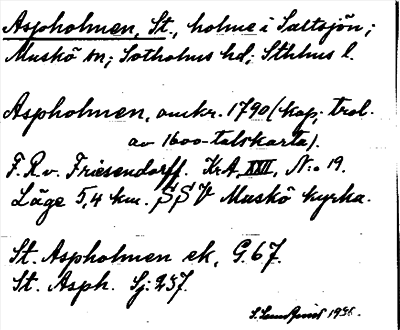 Aspholmen, St., holme i Saltsjön;
Muskö sn; Sotholms hd; Sthlms l.
Aspholmen, omkr. 1790 (kop; trol.
av 1600-talskarta).
F. R. v. Friesendorff. KrA, XXII, N:o 19.
Läge 5,4 km. SSV Muskö kyrka.
St. Aspholmen ek, G. 67.
St. Asph. Sj: 237.
1936.